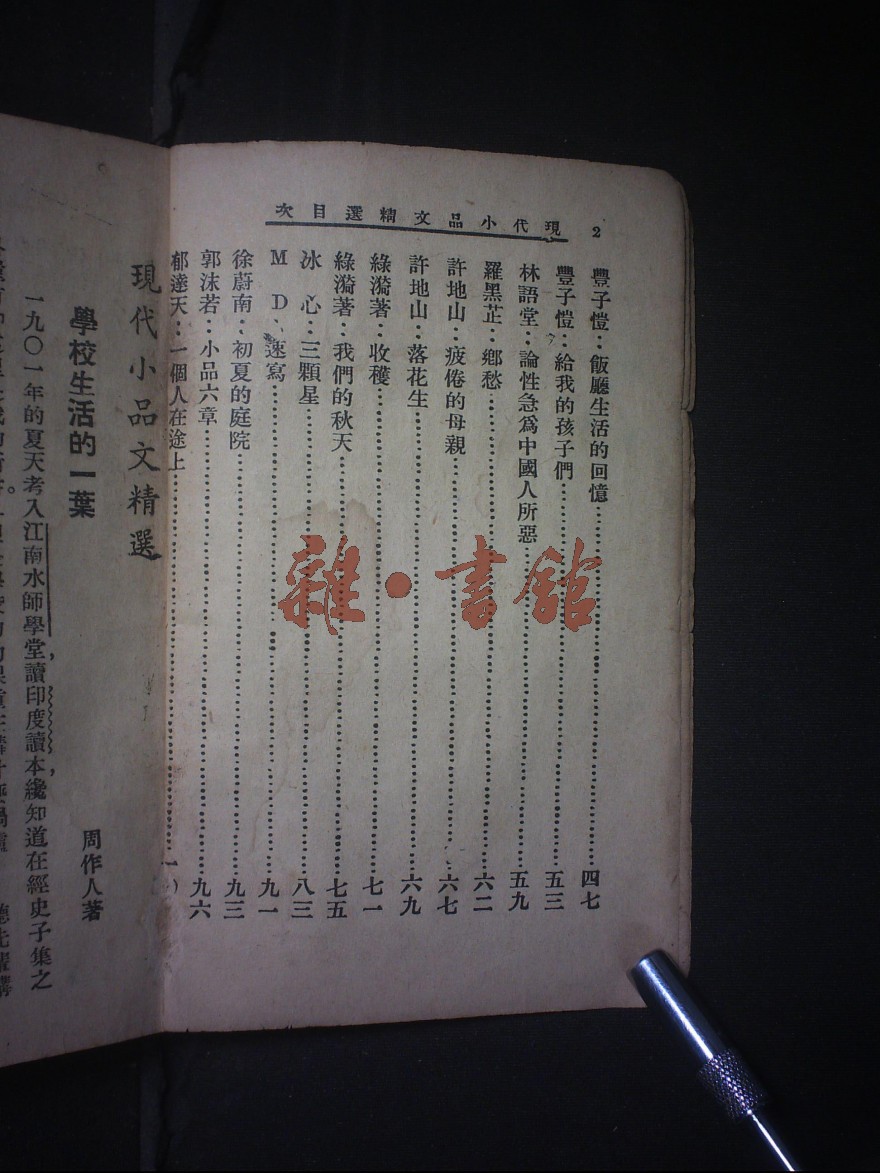 2
現代小品文精選目次
豐子愷：飯廳生活的回憶……四七
豐子愷：給我的孩子們……五三
林語堂：論性急爲中國人所惡……五九
羅黑芷：鄉愁……六二
許地山：疲倦的母親……六七
許地山：落花生……六九
綠漪著：收穫……七一
綠漪著：我們的秋天……七五
冰 心：三顆星……八三
M D、速寫……九一
徐蔚南：初夏的庭院……九三
郭沫若：小品六章……九六
郁達天：一個人在途上……一
現代小品文精選
學校生活的一葉
周作人著
一九〇一年的夏天考入江南水師學堂，讀印度讀本，纔知道在經史子集之
雜·書館